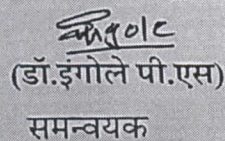 (डॉ.इंगोले पी.एस)
समन्वयक